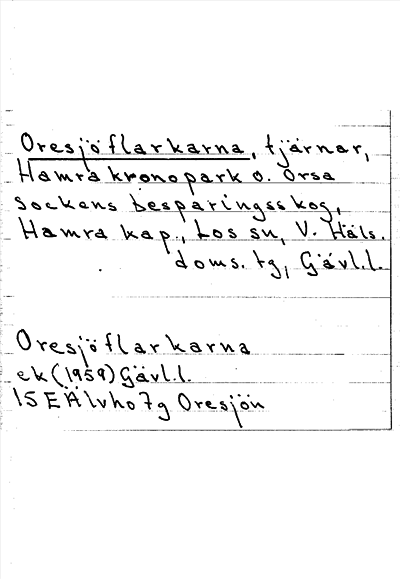 Oresjöflarkarna, tjärnar,
Hamra kronopark o. Orsa
sockens besparingsskog,
Hamra kap., Los sn, V. Häls.
doms. tg, Gävl.l.
Oresjöflarkarna
ek (1959) Gävl.l.
15E Älvho 7g Oresjön